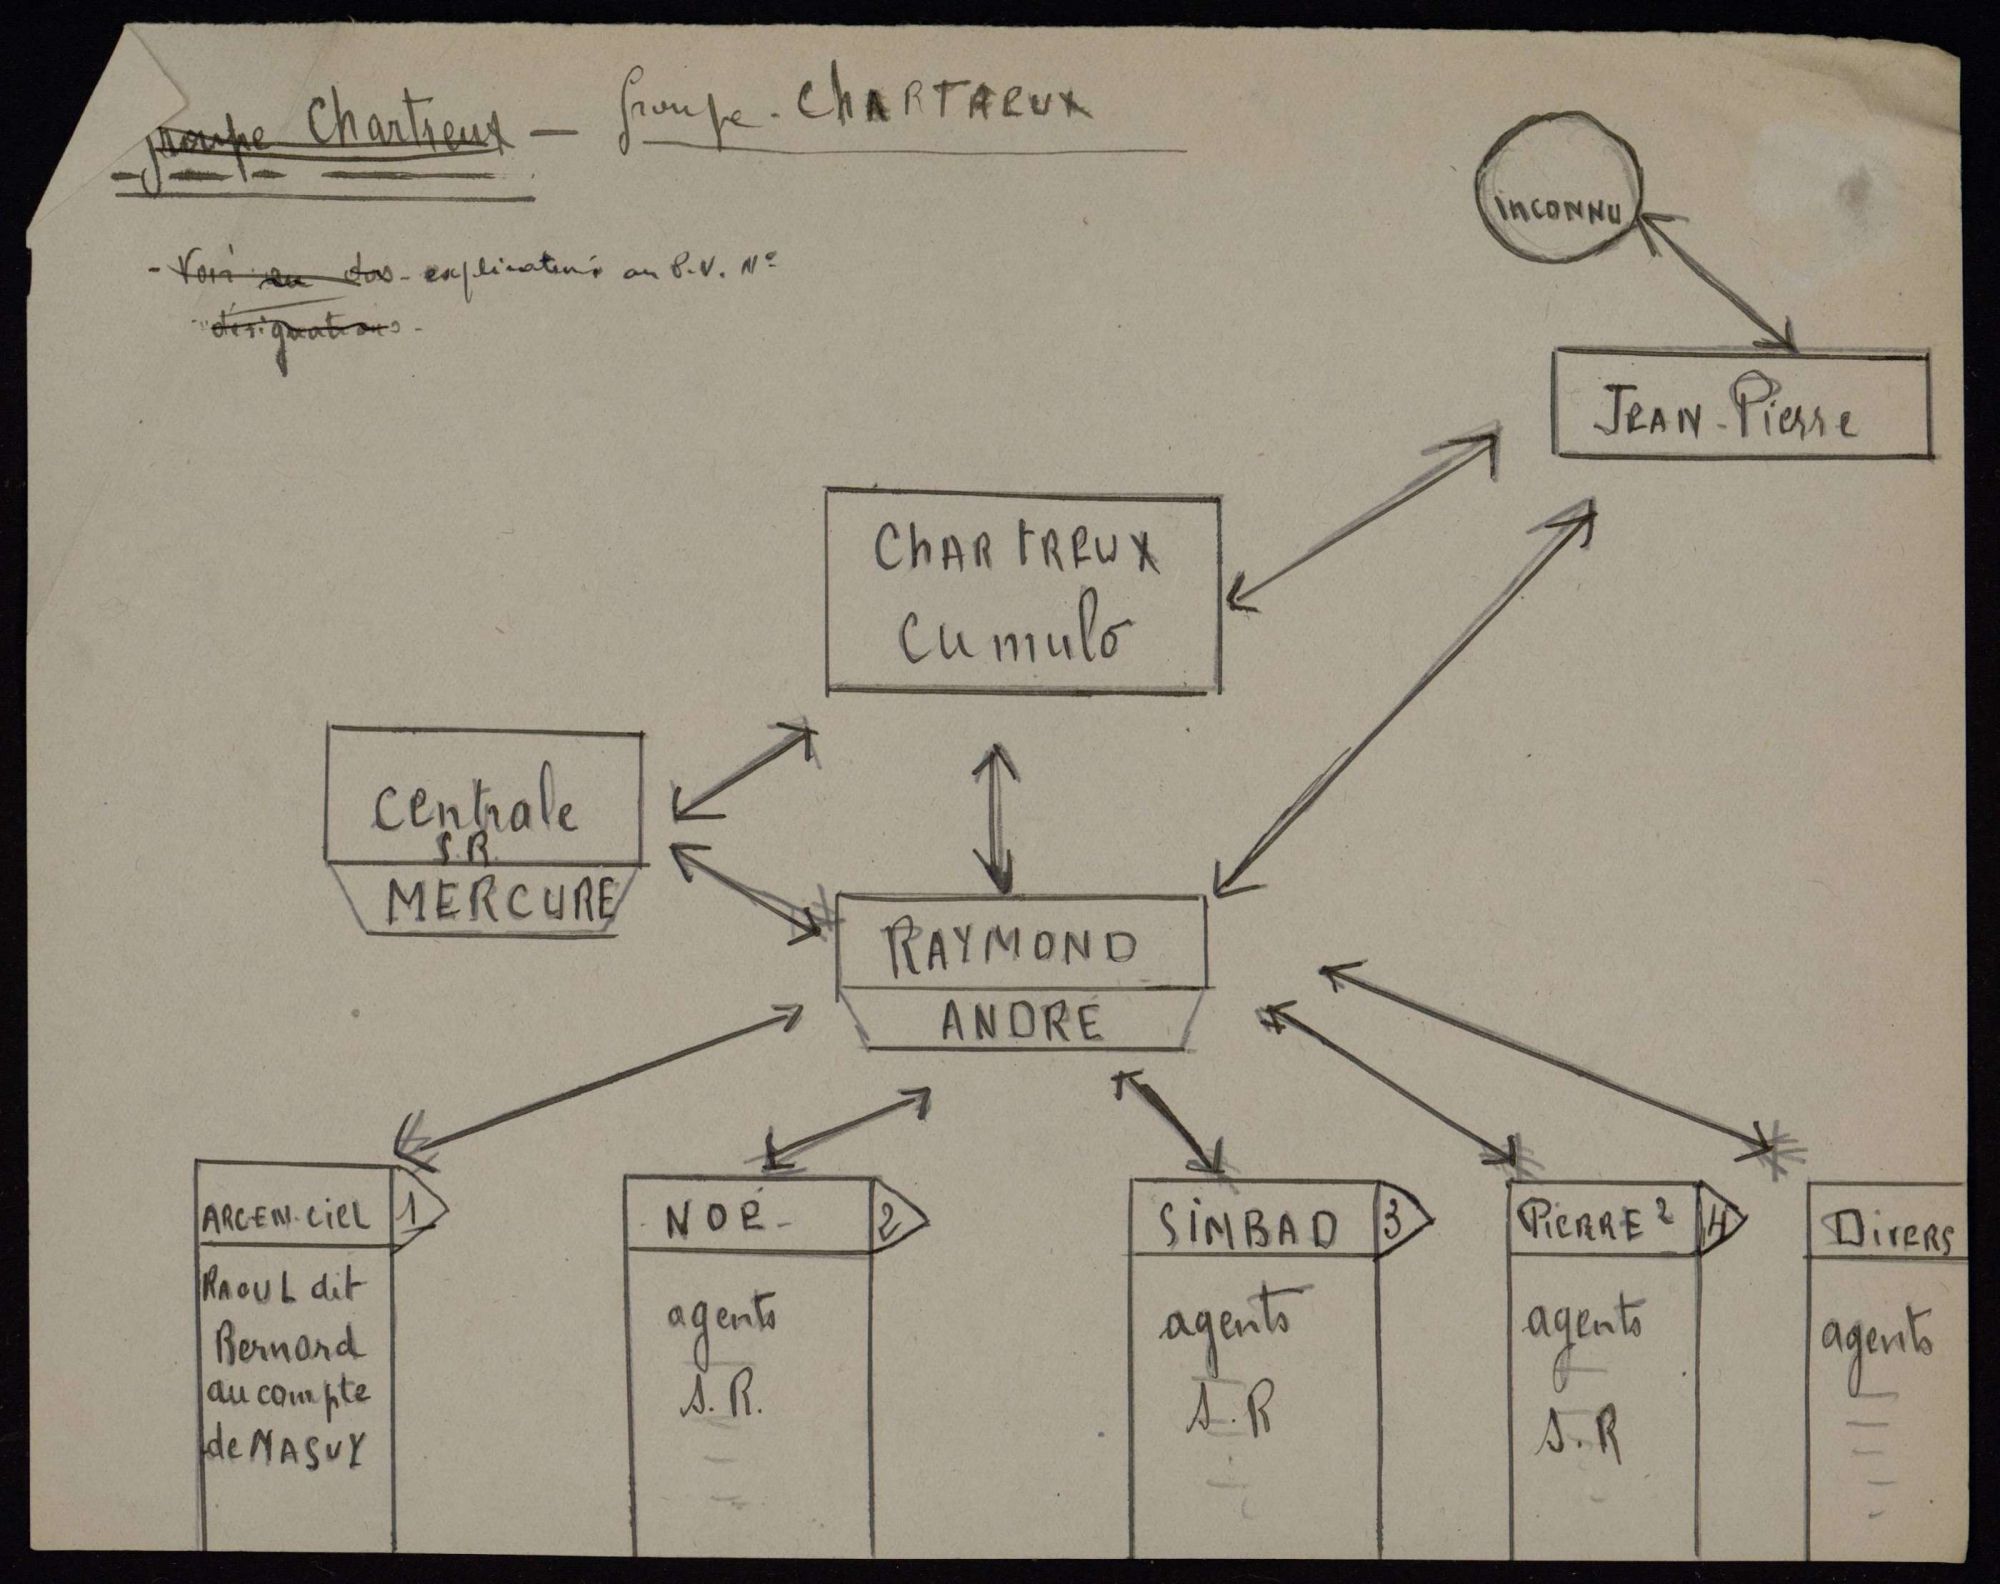 groupe Chartreux — groupe. CHARTREUX
- Voir au dos - explications au P.V. N°
désignations -
INCONNU
JEAN-Pierre
CHARTREUX
Cumulo
Centrale
S.R.
MERCURE
RAYMOND
ANDRÉ
ARC-EN-CIEL 1
RAOUL dit
Bernard
au compte
de MASUY
NOÉ - 2
agents
S.R.
SIMBAD 3
agents
S.R
PIERRE 2 4
agents
S.R
DIVERS
agents